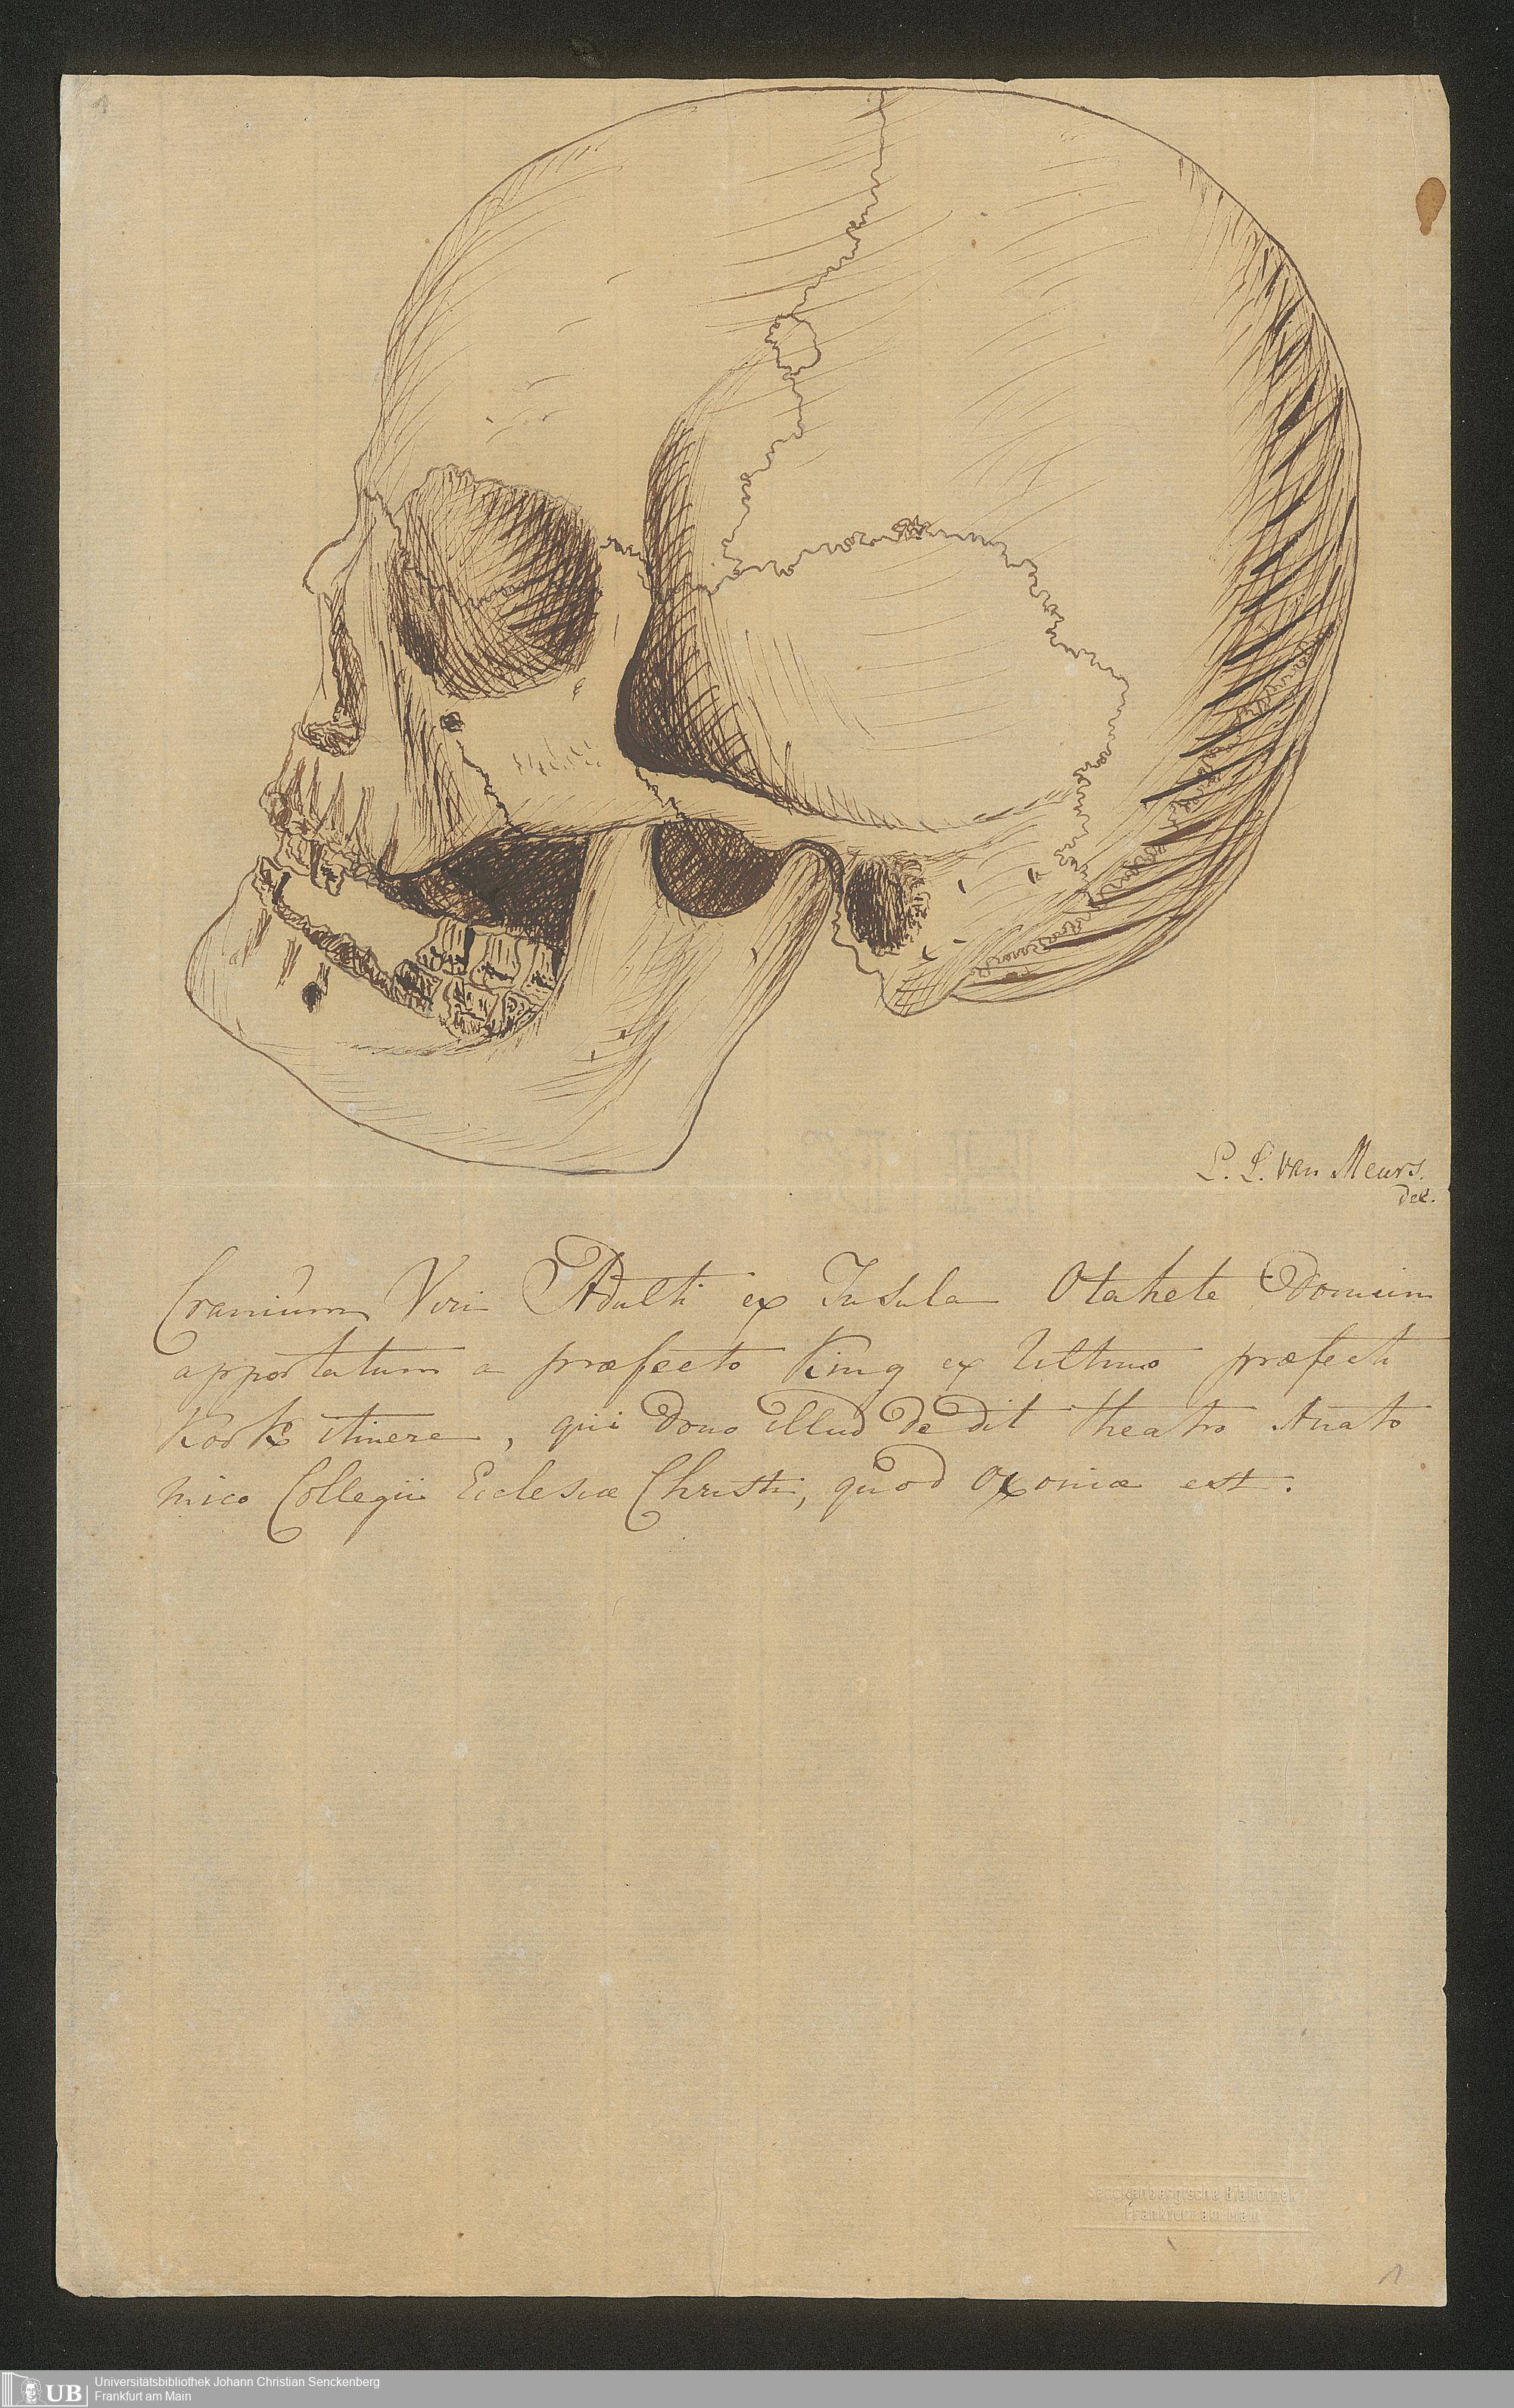 1
P. L. van Meurs.
del.
Cranium Viri Adulti ex Insula Otahete Domum
apportatum a præfecto King ex Ultimo præfecti
Kook itinere, qui Dono illud dedit theatro Anato
mico Collegii Eclesiæ Christi, quod Oxoniæ est.
Senckenbergische Bibliothek
Frankfurt am Main
1
UB
Universitätsbibliothek Johann Christian Senckenberg
Frankfurt am Main